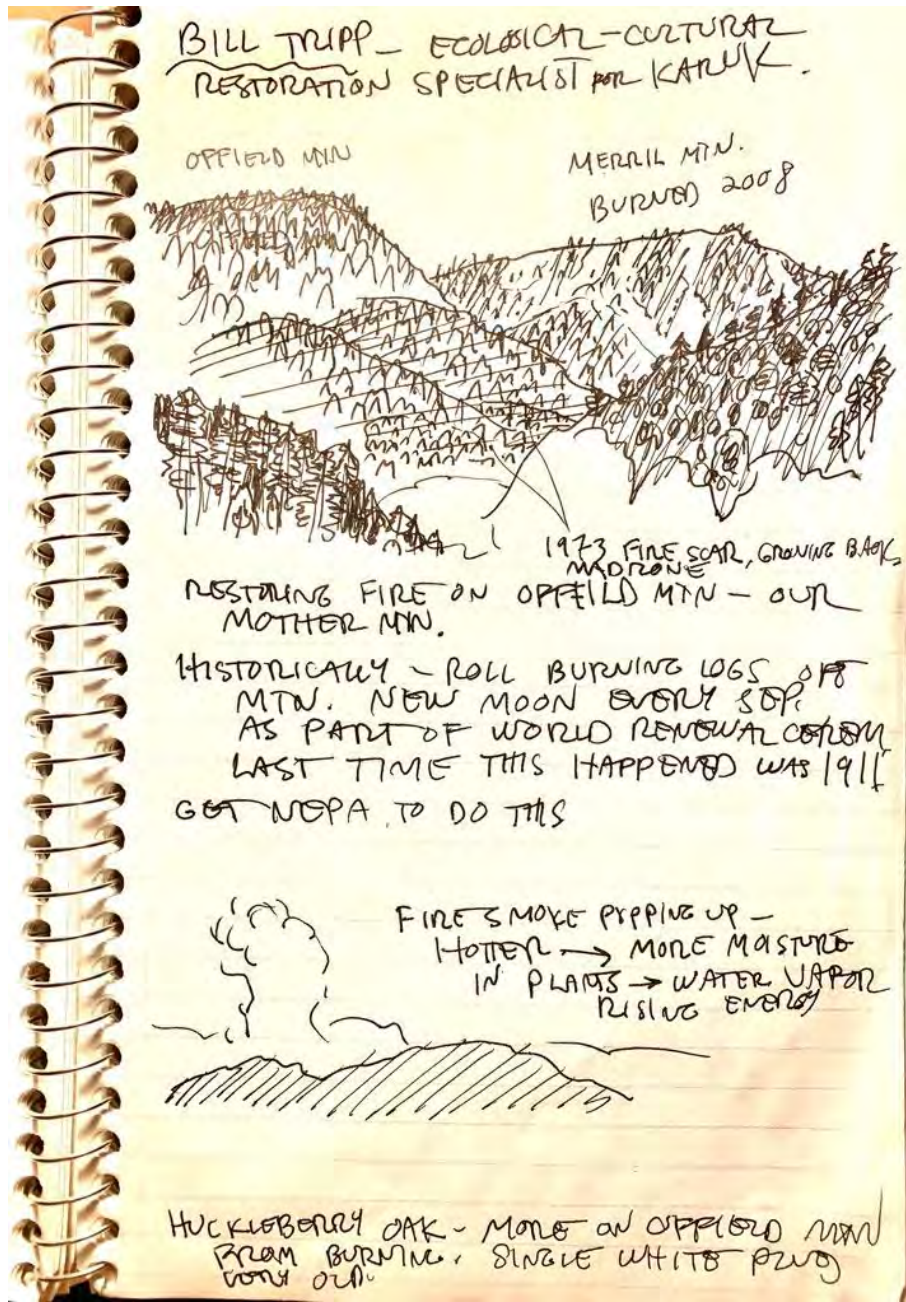 BILL TRIPP – ECOLOGICAL-CULTURAL
RESTORATION SPECIALIST FOR KARUK.
OFFIELD MTN
MERRIL MTN.
BURNED 2008
OFFIELD MTN
1973 FIRE SCAR, GROWING BACK,
MADRONE
RESTORING FIRE ON OFFEILD MTN – OUR
MOTHER MTN.
HISTORICALLY – ROLL BURNING LOGS OFF
MTN. NEW MOON EVERY SEP.
AS PART OF WORLD RENEWAL CEREM
LAST TIME THIS HAPPENED WAS 1911
GET NEPA TO DO THIS
FIRE SMOKE POPPING UP –
HOTTER → MORE MOISTURE
IN PLANTS → WATER VAPOR
RISING ENERGY
HUCKLEBERRY OAK – MORE ON OFFIELD MTN
FROM BURNING. SINGLE WHITE
VERY OLD.